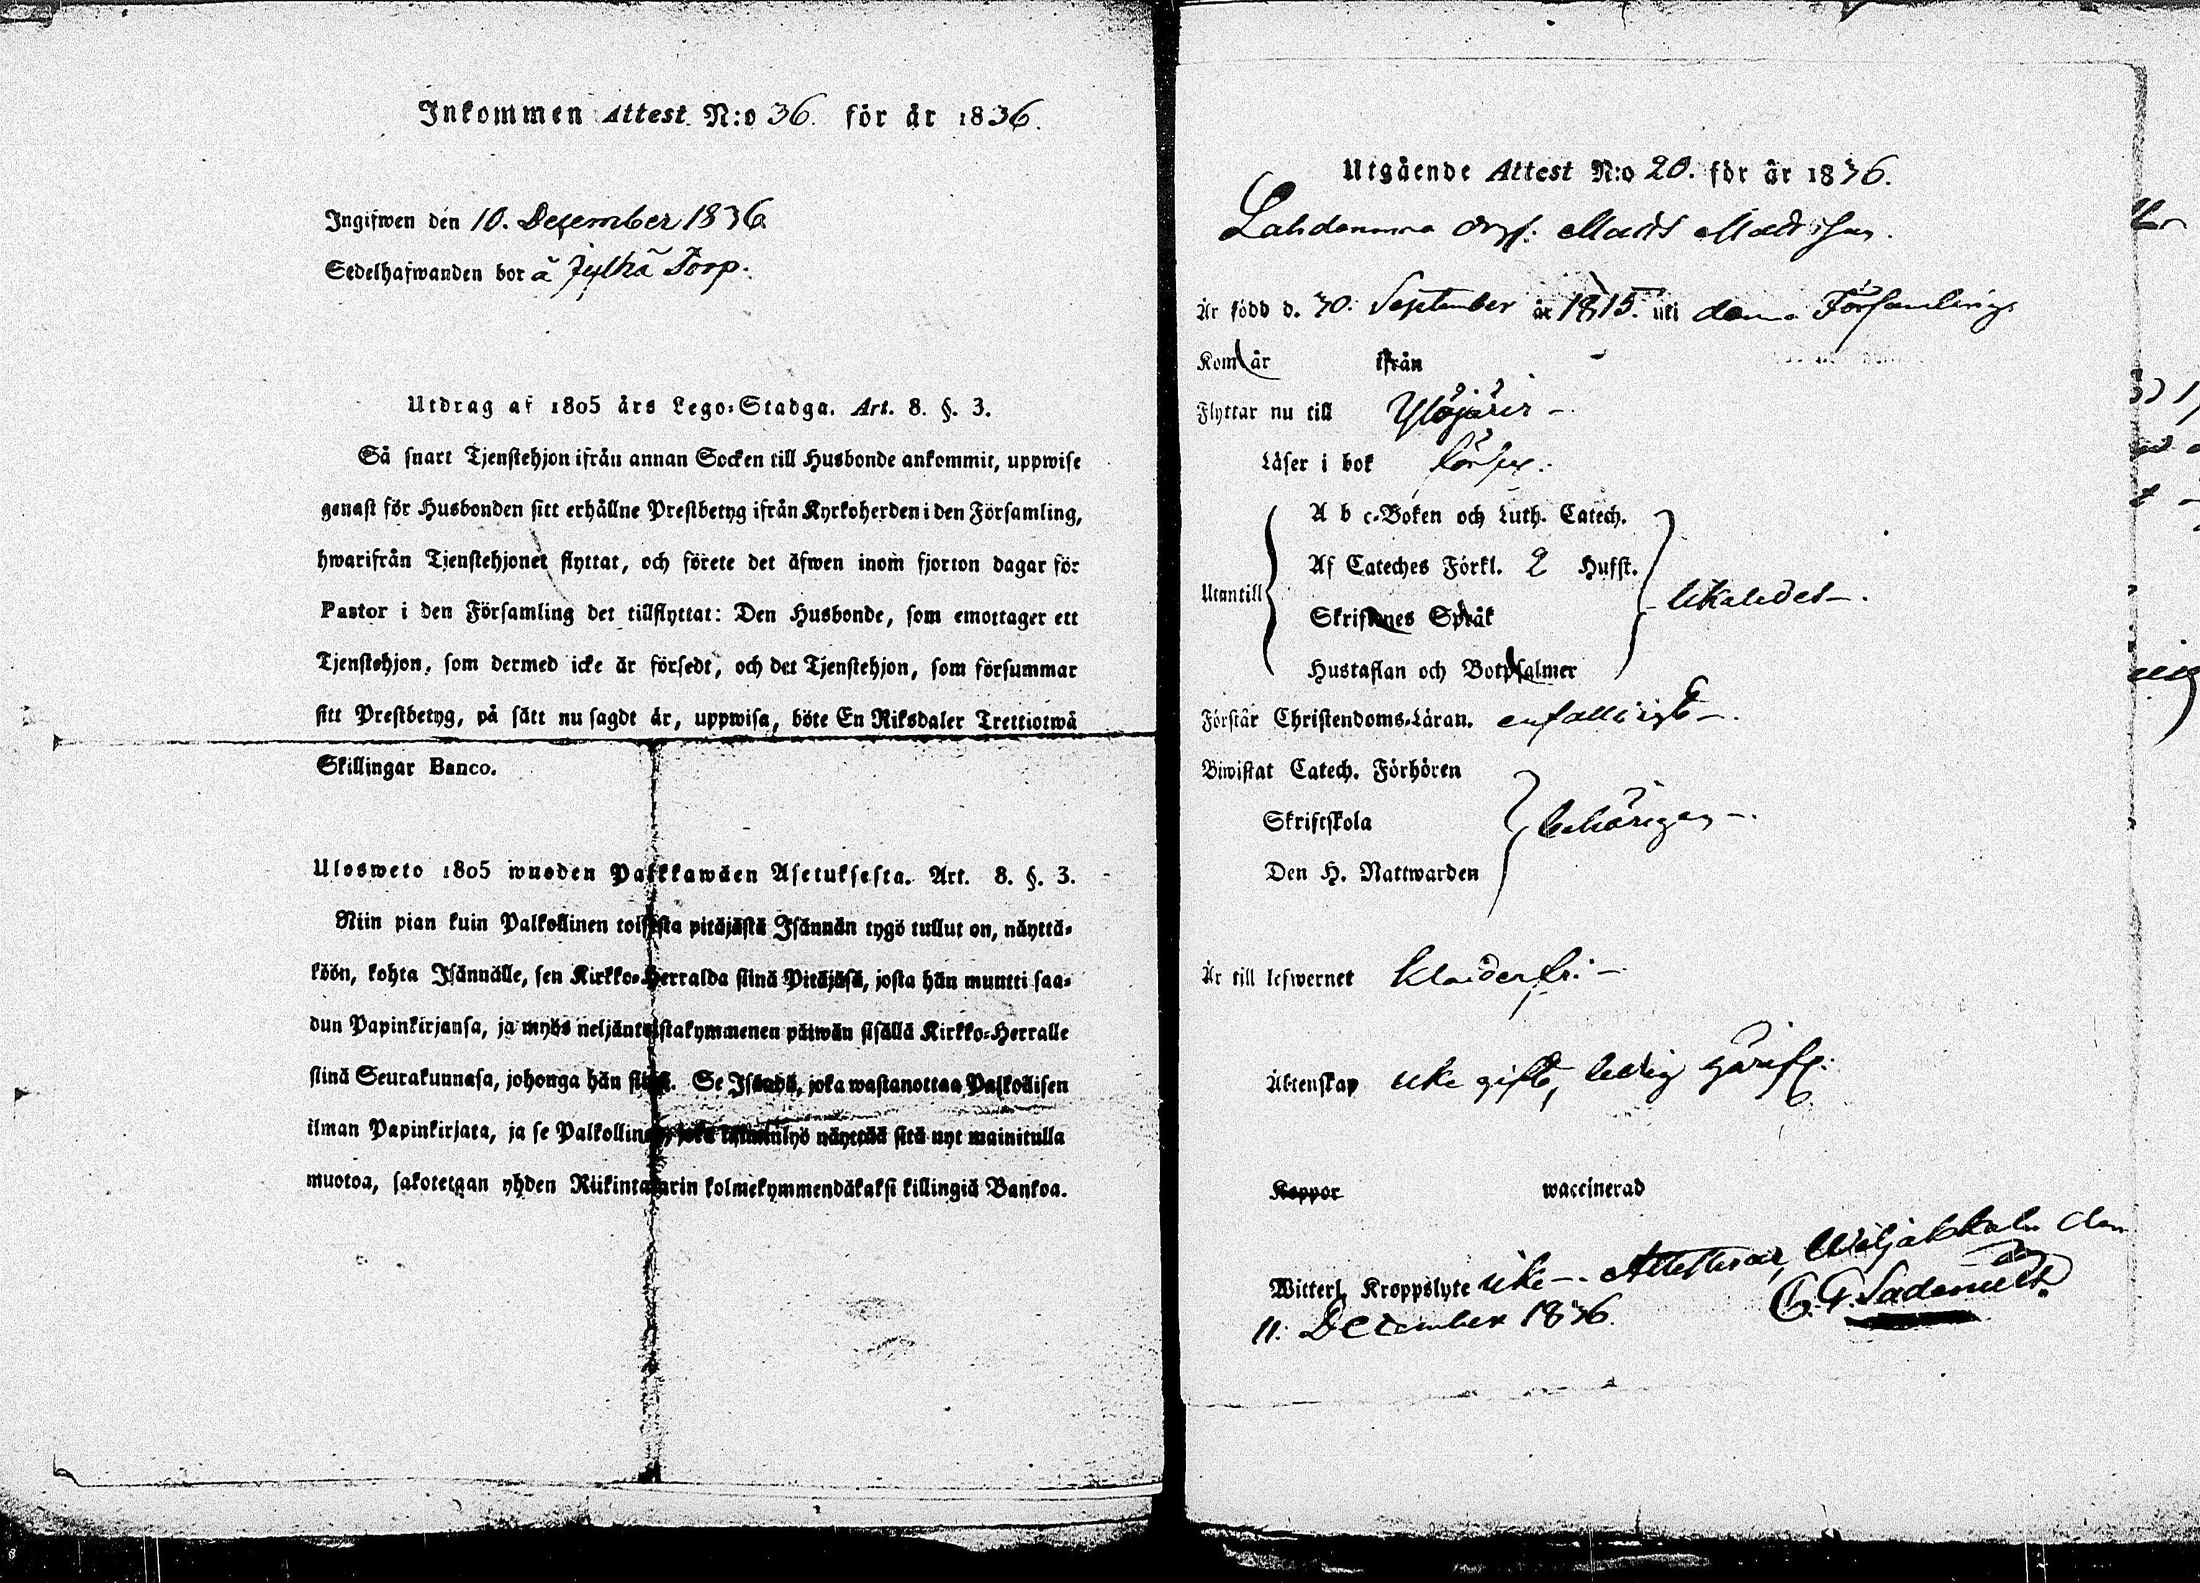 Inkommen Attest N:o 36. för år 1836.
Ingifwen den 10. December 1836
Sedelhafwanden bor å Jylhä Torp.
Utdrag af 1805 års Lego-Stadga. Art. 8. §. 3.
Så snart Tjenstehjon ifrån annan Socken till Husbonde ankommit, uppwise
genast för Husbonden sitt erhållne Prestbetyg ifrån Kyrkoherden i den Församling,
hwarifrån Tjenstehjonet flyttat, och förete det äfwen inom fjorton dagar för
Pastor i den Församling det tillflyttat: Den Husbonde, som emottager ett
Tjenstehjon, som dermed icke är försedt, och det Tjenstehjon, som försummar
sitt Prestbetyg, på sätt nu sagdt är, uppwisa, böte En Riksdaler Trettiotwå
Skillingar Banco.
Ulosweto 1805 wuoden Palkkawäen Asetuksesta. Art. 8. §. 3.
Niin pian kuin Palkollinen toisesta pitäjästä Isännän tygö tullut on, näyttä-
köön, kohta Isännälle, sen Kirkko-Herralda siinä Pitäjäsä, josta hän muutti saa-
dun Papinkirjansa, ja myös neljäntoistakymmenen päiwän sisällä Kirkko-Herralle
siinä Seurakunnasa, johonga hän Se Isändä, joka wastanottaa Palkollisen
ilman Papinkirjata, ja se Palkollinen, joka näyttää sitä nyt mainitulla
muotoa, sakotetaan yhden Riikintalarin kolmekymmendäkaksi killingiä Bankoa.
Utgående Attest N:o 20. för år 1836.
Mats Matsson.
Är född d. 30. September år 1815. uti denna Församling
Kom år ifrån
Flyttar nu till Ylöjärvi –
Läser i bok försv.
A b c-Boken och Luth. Catech.
Af Cateches Förkl. 2 Hufst.
Utantill likaledes –.
Skriftenes Språk
Hustaflan och Botpsalmer
Förstår Christendoms-Läran. enfalligt –.
Biwistat Catech. Förhören
Skriftskola behörigen –.
Den H. Nattwarden
Är till lefwernet klanderfri –
Äktenskap icke gift, ledig
Koppor waccinerad
Witterl. Kroppslyte icke –. Attesterar, Wiljakkala den
11. December 1836.